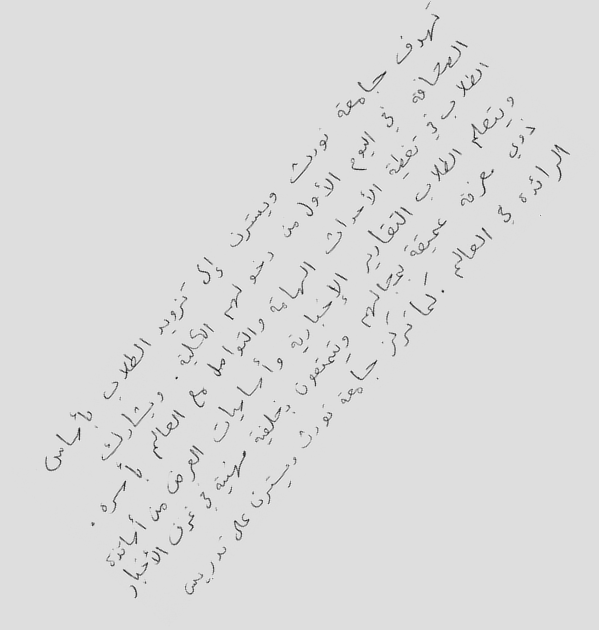 تهدف جامعة نورث ويسترن إلى تزويد الطلاب بأساس
الصحافة في اليوم الأول من دخولهم الكلية. ويشارك
الطلاب في تغطية الأحداث الهامة والتواصل مع العالم بأسره.
ويتعلم الطلاب التقارير الإخبارية وأساسيات العرض من أساتذة
ذوي معرفة عميقة بمجالهم ويتمتعون بخلفية مهنية في غرف الأخبار
الرائدة في العالم. كما تركز جامعة نورث ويسترن على تدريس